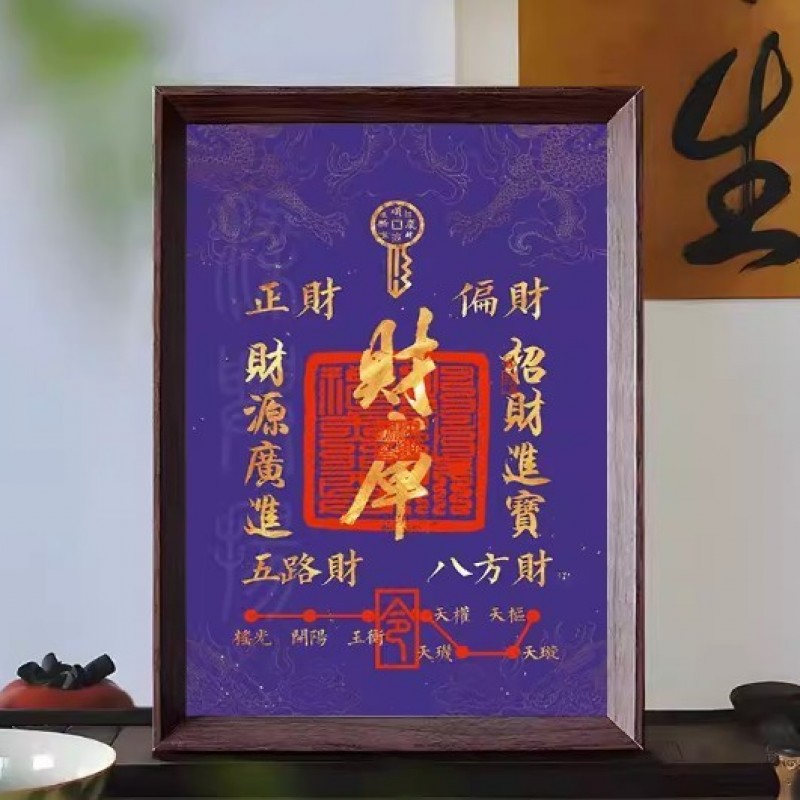 生
正財
偏財
財庫
招財進寶
財源廣進
五路財
八方財
令
搖光
開陽
玉衡
天權
天樞
天璣
天璇